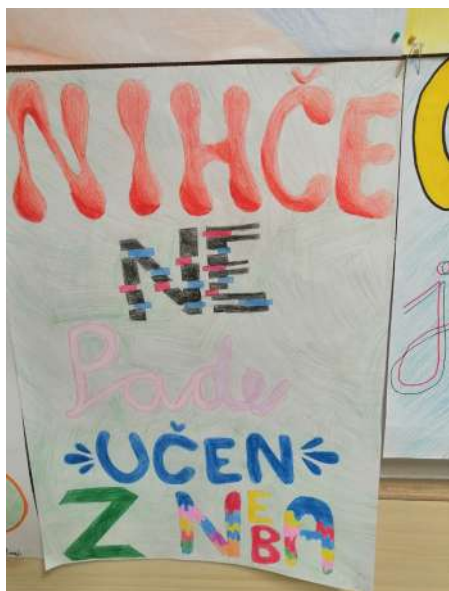 NIHČE
NE
Pade
UČEN
Z NEBA